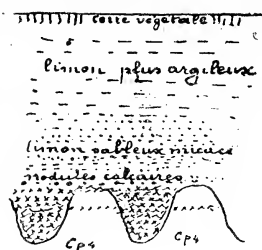 terre végétale
limon plus argileux
limon sableux micacé
nodules calcaires
Cp4 Cp4